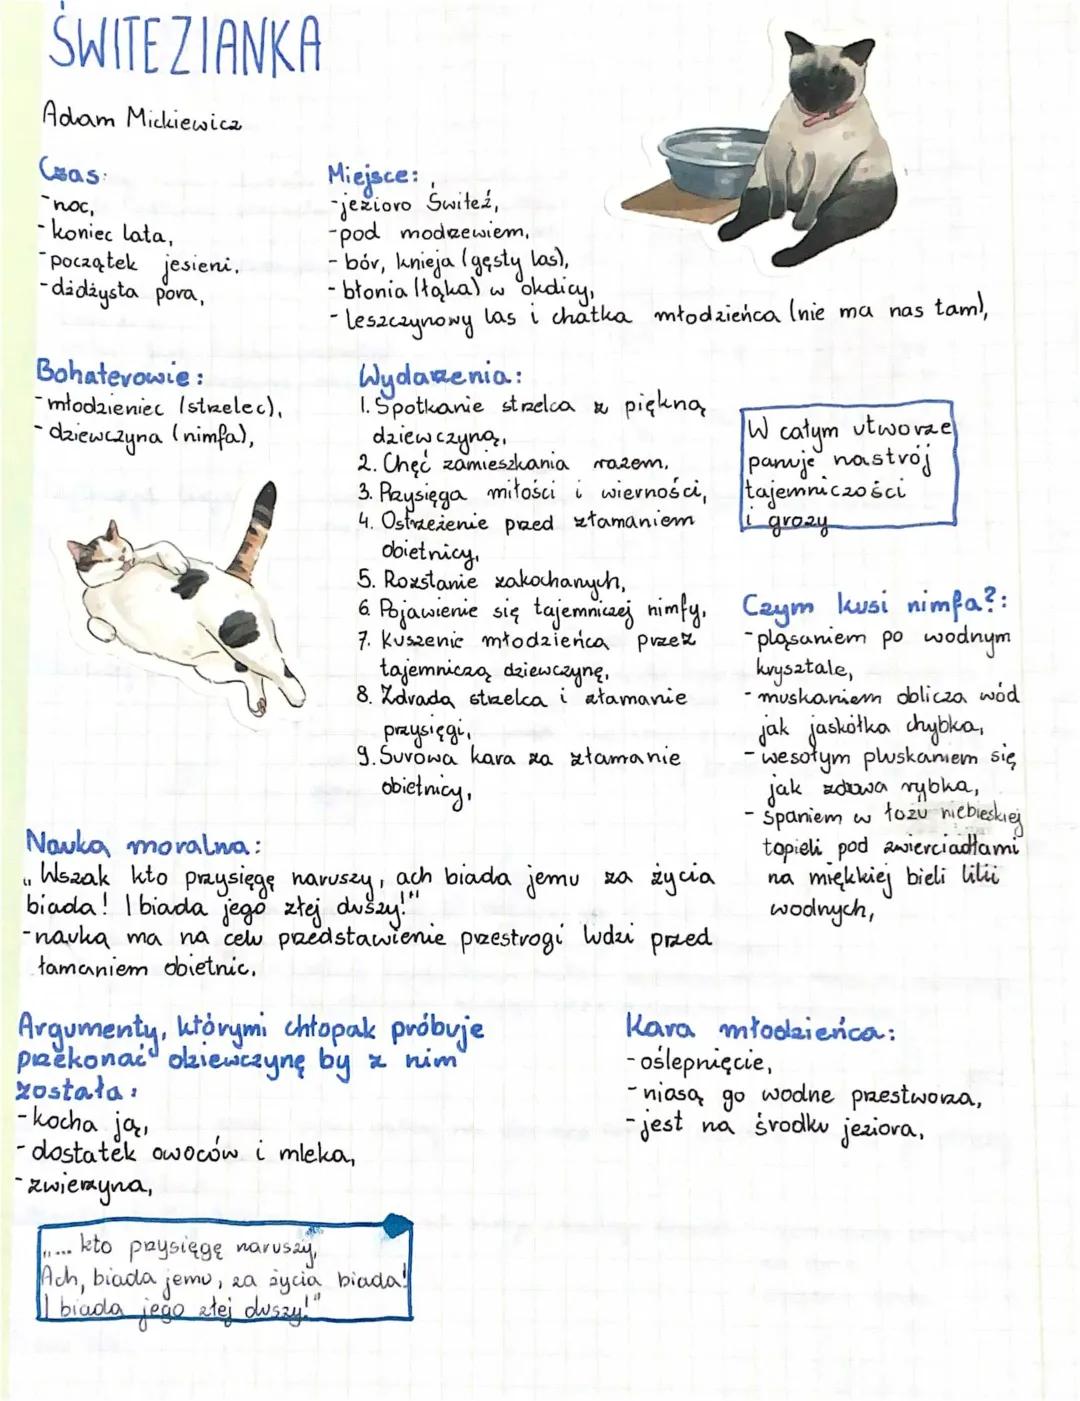 ŚWITEZIANKA
Adam Mickiewicz
Czas:
- noc,
- koniec lata,
- początek jesieni,
- dżdżysta pora,
Miejsce:
- jezioro Świteź,
- pod modrzewiem,
- bór, knieja (gęsty las),
- błonia (łąka) w okolicy,
- leszczynowy las i chatka młodzieńca (nie ma nas tam),
Bohaterowie:
- młodzieniec (strzelec),
- dziewczyna (nimfa),
Wydarzenia:
1. Spotkanie strzelca z piękną
dziewczyną,
2. Chęć zamieszkania razem,
3. Przysięga miłości i wierności,
4. Ostrzeżenie przed złamaniem
obietnicy,
5. Rozstanie zakochanych,
6. Pojawienie się tajemniczej nimfy,
7. Kuszenie młodzieńca przez
tajemniczą dziewczynę,
8. Zdrada strzelca i złamanie
przysięgi,
9. Surowa kara za złamanie
obietnicy,
W całym utworze
panuje nastrój
tajemniczości
i grozy
Czym kusi nimfa?:
- pląsaniem po wodnym
krysztale,
- muskaniem oblicza wód
jak jaskółka chybka,
- wesołym pluskaniem się
jak zdrowa rybka,
- spaniem w łożu niebieskiej
topieli pod zwierciadłami
na miękkiej bieli lilii
wodnych,
Nauka moralna:
„Wszak kto przysięgę naruszy, ach biada jemu za życia
biada! I biada jego złej duszy!"
- nauka ma na celu przedstawienie przestrogi ludzi przed
łamaniem obietnic.
Argumenty, którymi chłopak próbuje
przekonać dziewczynę by z nim
została:
- kocha ją,
- dostatek owoców i mleka,
- zwierzyna,
Kara młodzieńca:
- oślepnięcie,
- niosą go wodne przestworza,
- jest na środku jeziora,
„... kto przysięgę naruszy,
Ach, biada jemu, za życia biada!
I biada jego złej duszy!"